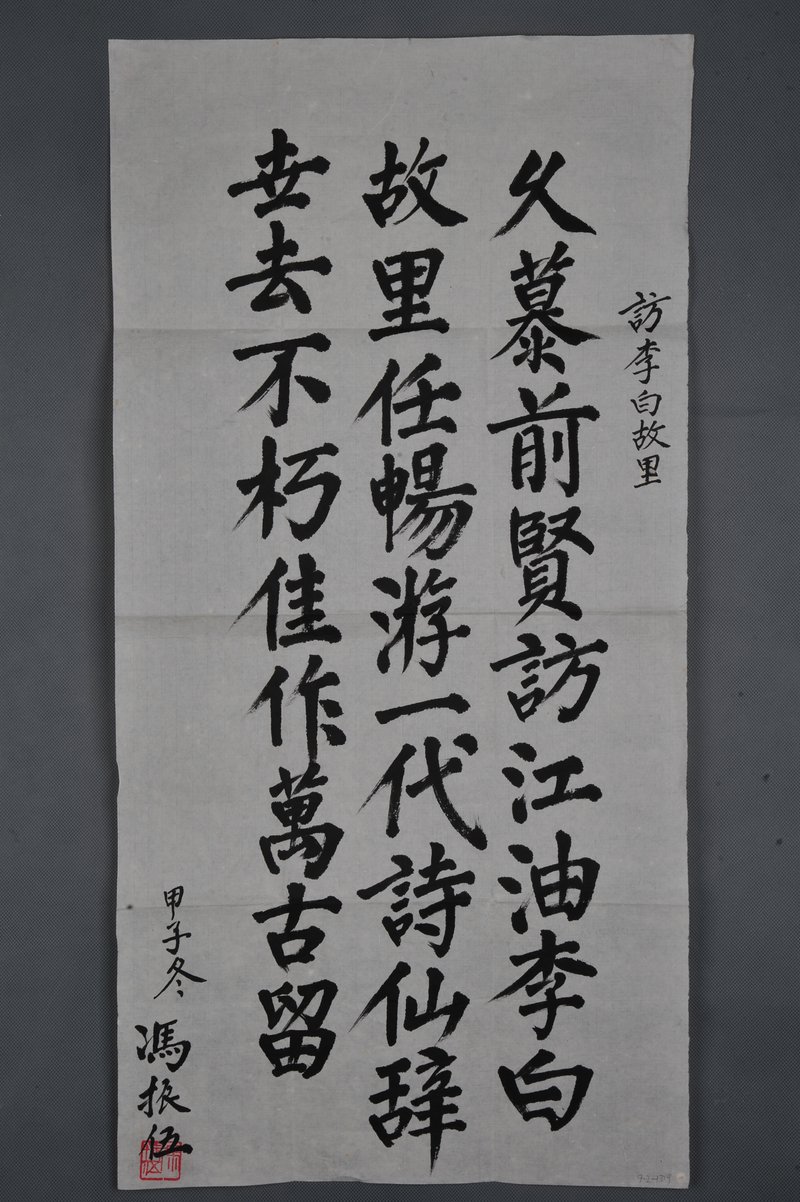 訪李白故里
久慕前賢訪江油李白
故里任暢游一代詩仙辞
世去不朽佳作萬古留
甲子冬
馮振伍